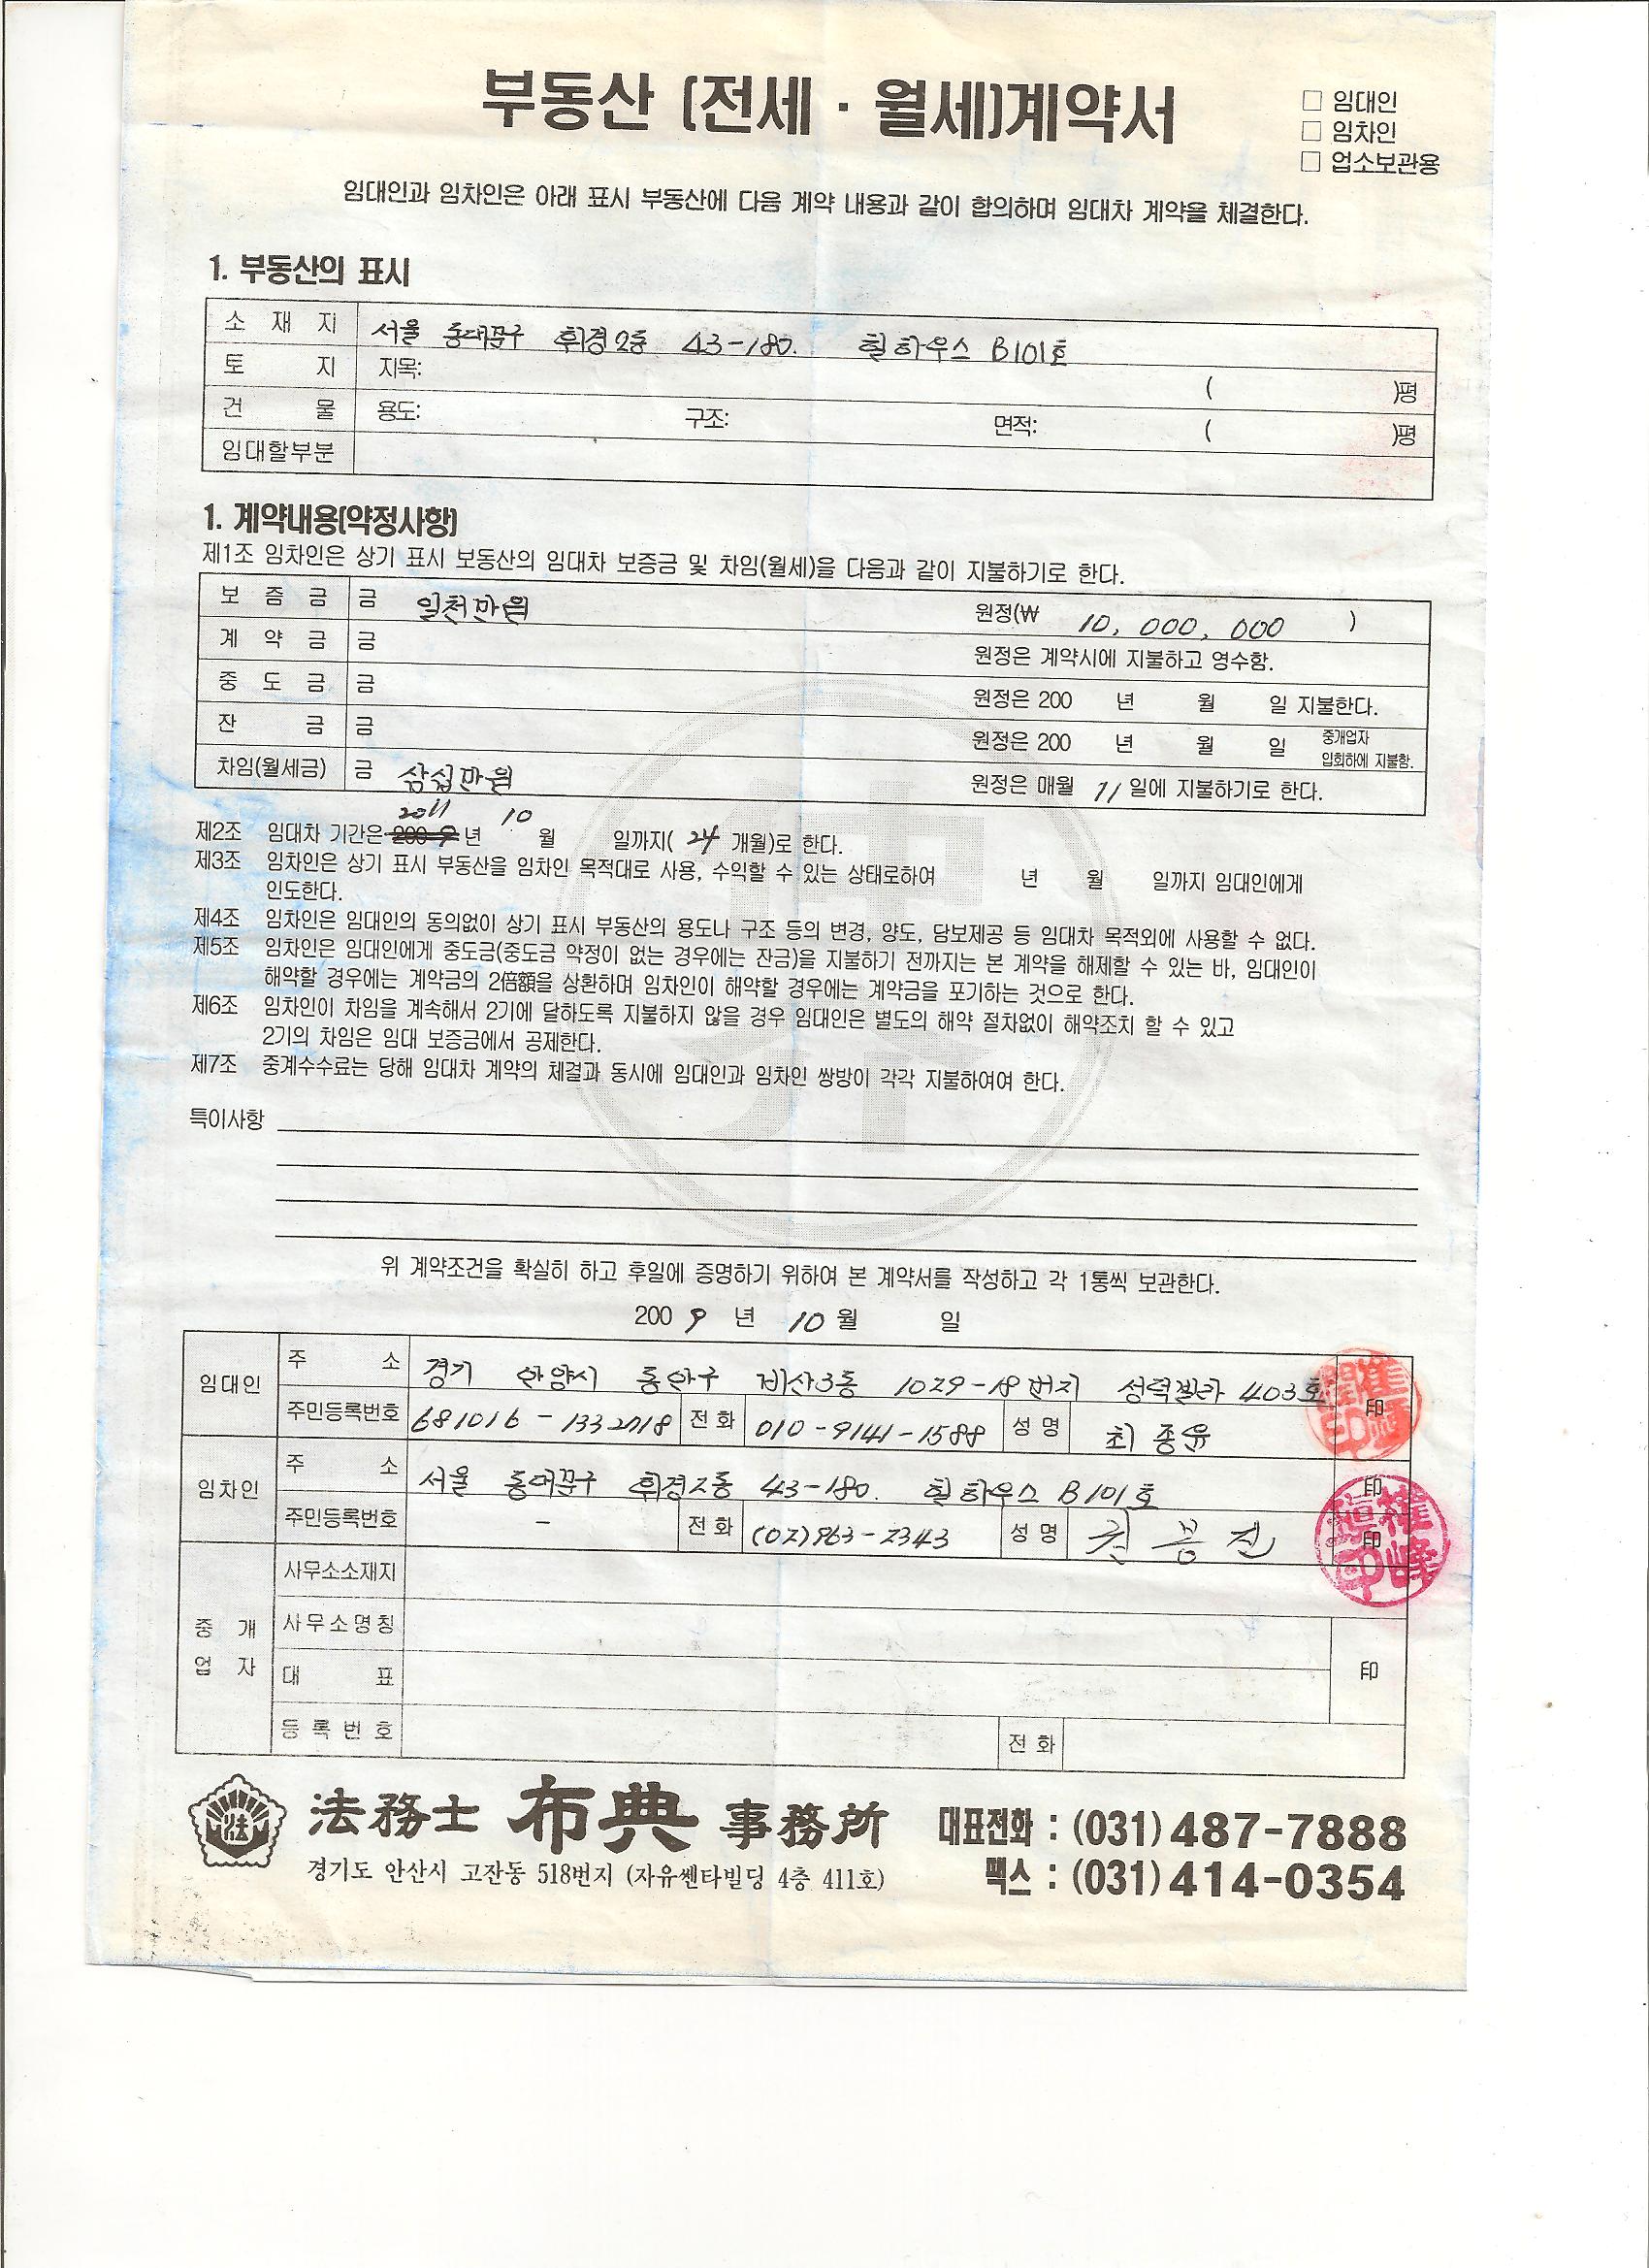 부동산 [전세 · 월세]계약서
□ 임대인
□ 임차인
□ 업소보관용
임대인과 임차인은 아래 표시 부동산에 다음 계약 내용과 같이 합의하며 임대차 계약을 체결한다.
1. 부동산의 표시
소 재 지 서울 동대문구 휘경2동 43-180. 힐하우스 B101호
토 지 지목: ( )평
건 물 용도: 구조: 면적: ( )평
임대할부분
1. 계약내용[약정사항]
제1조 임차인은 상기 표시 보동산의 임대차 보증금 및 차임(월세)을 다음과 같이 지불하기로 한다.
보 증 금 금 일천만원 원정(₩ 10,000,000 )
계 약 금 금 원정은 계약시에 지불하고 영수함.
중 도 금 금 원정은 200 년 월 일 지불한다.
잔 금 금 원정은 200 년 월 일 중개업자 입회하에 지불함.
차임(월세금) 금 삼십만원 원정은 매월 11 일에 지불하기로 한다.
2011 10
제2조 임대차 기간은 2009 년 월 일까지( 24 개월)로 한다.
제3조 임차인은 상기 표시 부동산을 임차인 목적대로 사용, 수익할 수 있는 상태로하여 년 월 일까지 임대인에게
인도한다.
제4조 임차인은 임대인의 동의없이 상기 표시 부동산의 용도나 구조 등의 변경, 양도, 담보제공 등 임대차 목적외에 사용할 수 없다.
제5조 임차인은 임대인에게 중도금(중도금 약정이 없는 경우에는 잔금)을 지불하기 전까지는 본 계약을 해제할 수 있는 바, 임대인이
해약할 경우에는 계약금의 2倍額을 상환하며 임차인이 해약할 경우에는 계약금을 포기하는 것으로 한다.
제6조 임차인이 차임을 계속해서 2기에 달하도록 지불하지 않을 경우 임대인은 별도의 해약 절차없이 해약조치 할 수 있고
2기의 차임은 임대 보증금에서 공제한다.
제7조 중계수수료는 당해 임대차 계약의 체결과 동시에 임대인과 임차인 쌍방이 각각 지불하여여 한다.
특이사항
위 계약조건을 확실히 하고 후일에 증명하기 위하여 본 계약서를 작성하고 각 1통씩 보관한다.
2009 년 10 월 일
임대인 주 소 경기 안양시 동안구 비산3동 1029-18번지 성력빌라 403호 印
주민등록번호 681016-1332718 전화 010-9141-1588 성명 최종윤
임차인 주 소 서울 동대문구 휘경2동 43-180. 힐하우스 B101호 印
주민등록번호 - 전화 (02)963-2343 성명 권봉진 印
중 개 업 자 사무소소재지
사무소명칭 印
대 표
등록번호 전화
法務士 布典 事務所 대표전화 : (031)487-7888
경기도 안산시 고잔동 518번지 (자유쎈타빌딩 4층 411호) 팩스 : (031)414-0354